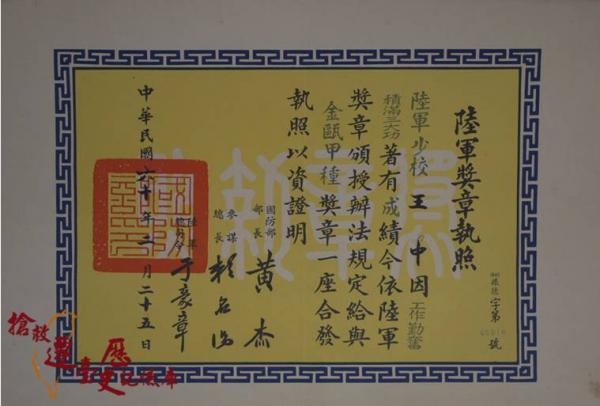 陸軍獎章執照
字第
號
陸軍少校王中因工作勤奮
積滿三大功著有成績今依陸軍
獎章頒授辦法規定給與
金甌甲種獎章一座合發
執照以資證明
國防部
部長 黃杰
參謀
總長
陸軍
總司令 于豪章
中華民國六十年二月二十五日
搶救遷臺歷史記憶庫